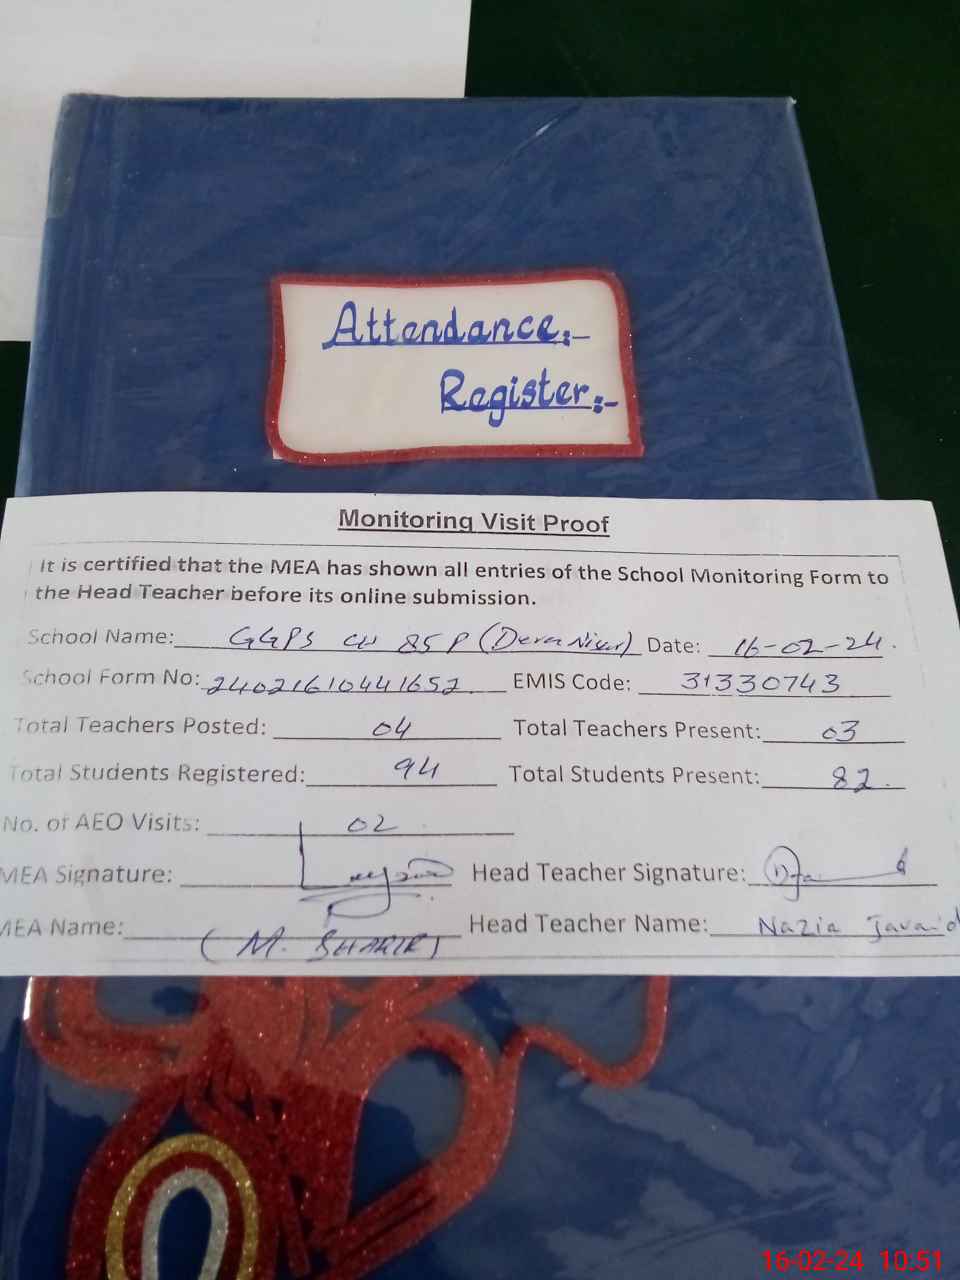 Attendance:-
Register:-
Monitoring Visit Proof
It is certified that the MEA has shown all entries of the School Monitoring Form to
the Head Teacher before its online submission.
School Name: GGPS CH 85 P (Dera Nisar) Date: 16-02-24.
School Form No: 24021610441652 EMIS Code: 31330743
Total Teachers Posted: 04 Total Teachers Present: 03
Total Students Registered: 94 Total Students Present: 82.
No. of AEO Visits: 02
MEA Signature: Head Teacher Signature:
MEA Name: (M. ) Head Teacher Name: Nazia Javaid
16-02-24 10:51